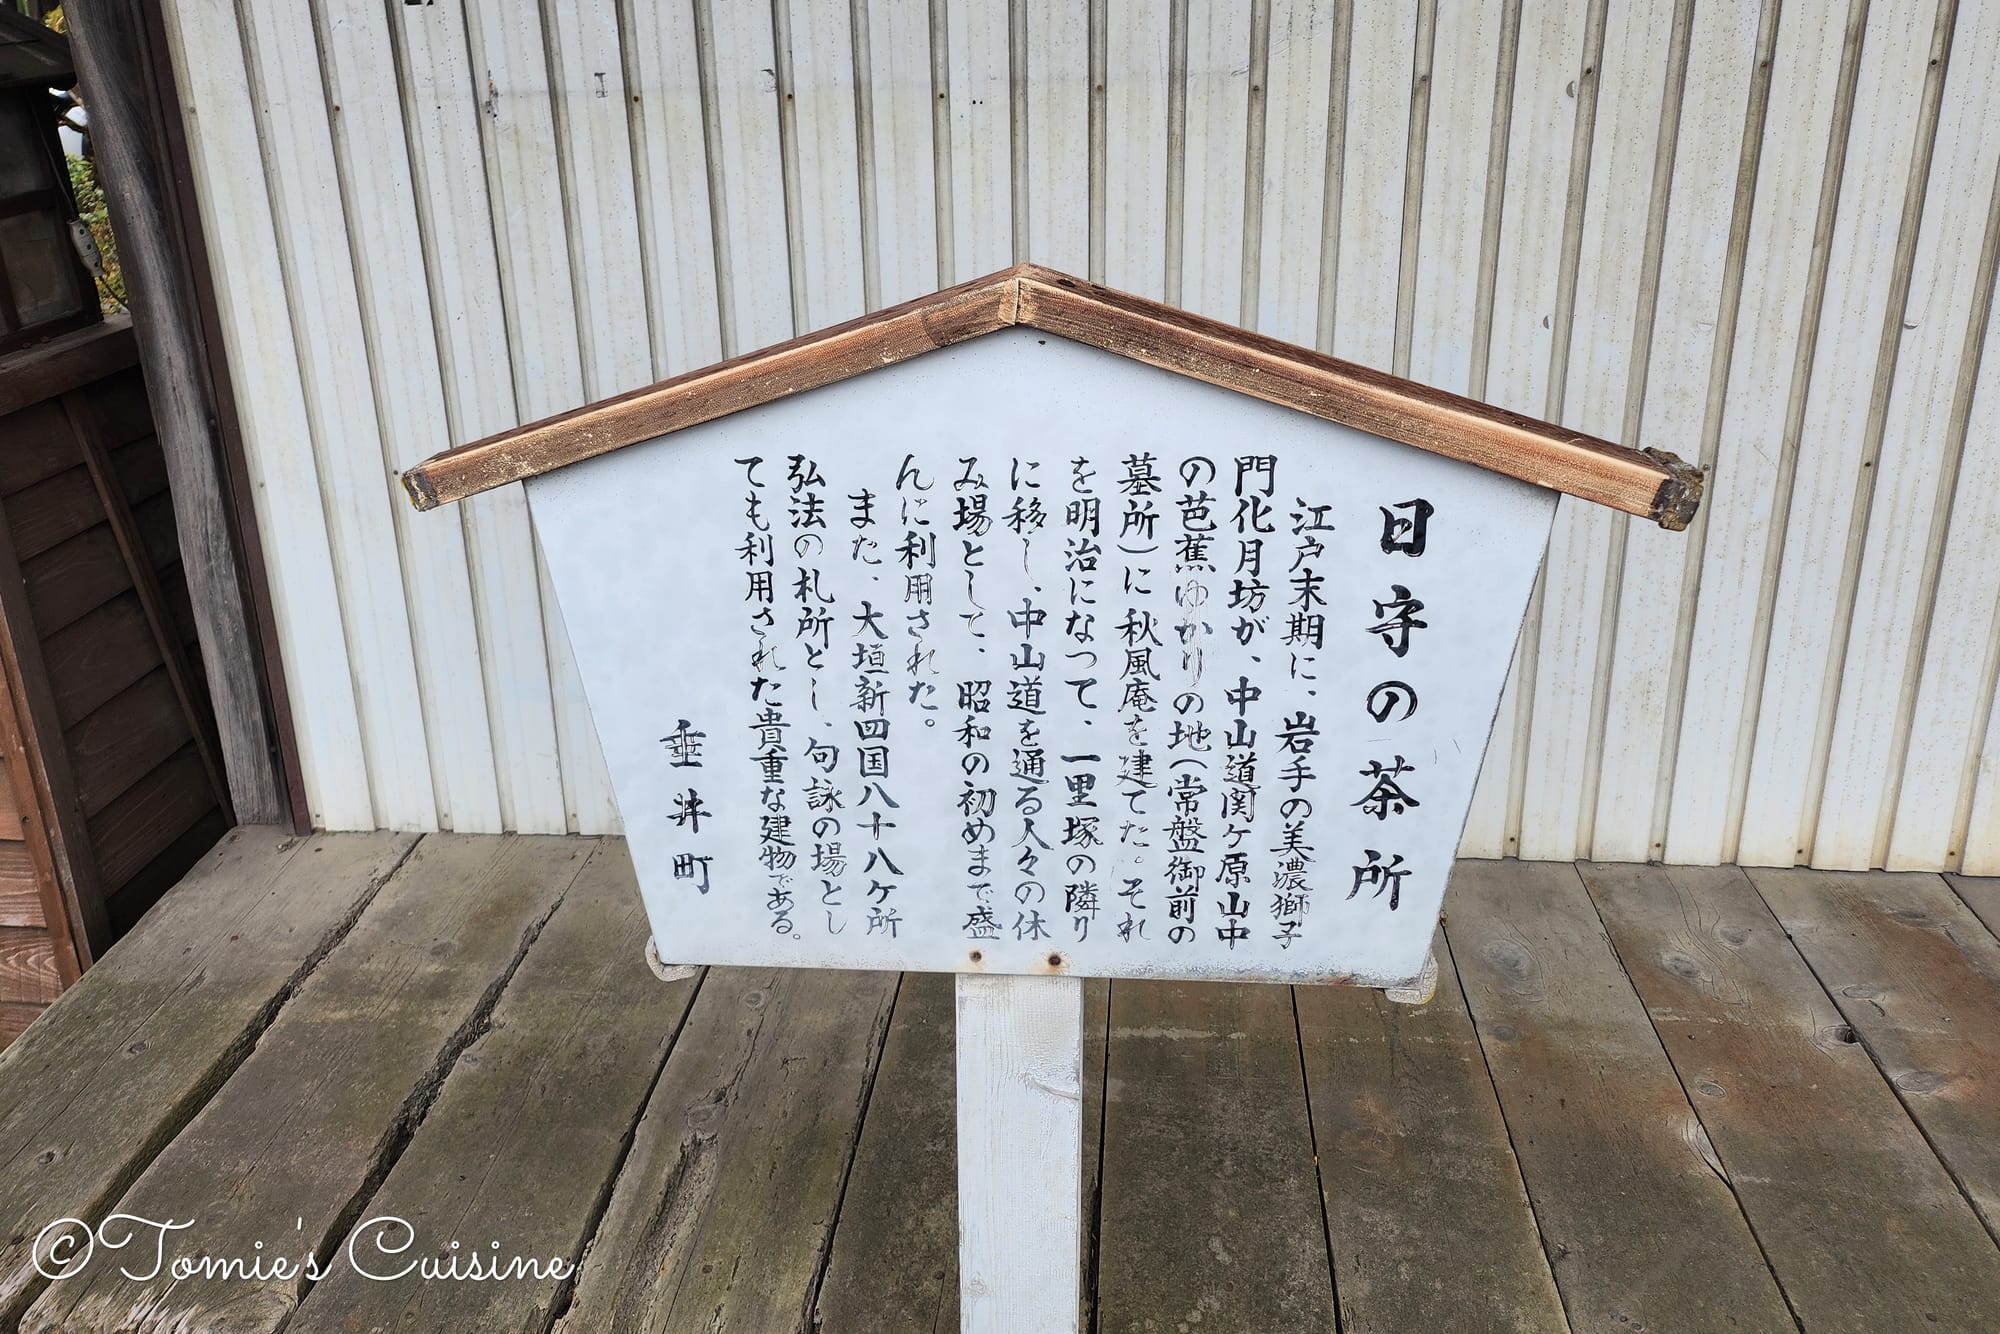 日守の茶所
江戸末期に、岩手の美濃獅子
門化月坊が、中山道関ヶ原山中
の芭蕉ゆかりの地(常盤御前の
墓所)に秋風庵を建てた。それ
を明治になって、一里塚の隣り
に移し、中山道を通る人々の休
み場として、昭和の初めまで盛
んに利用された。
また、大垣新四国八十八ヶ所
弘法の札所とし、句詠の場とし
ても利用された貴重な建物である。
垂井町
©Tomie's Cuisine